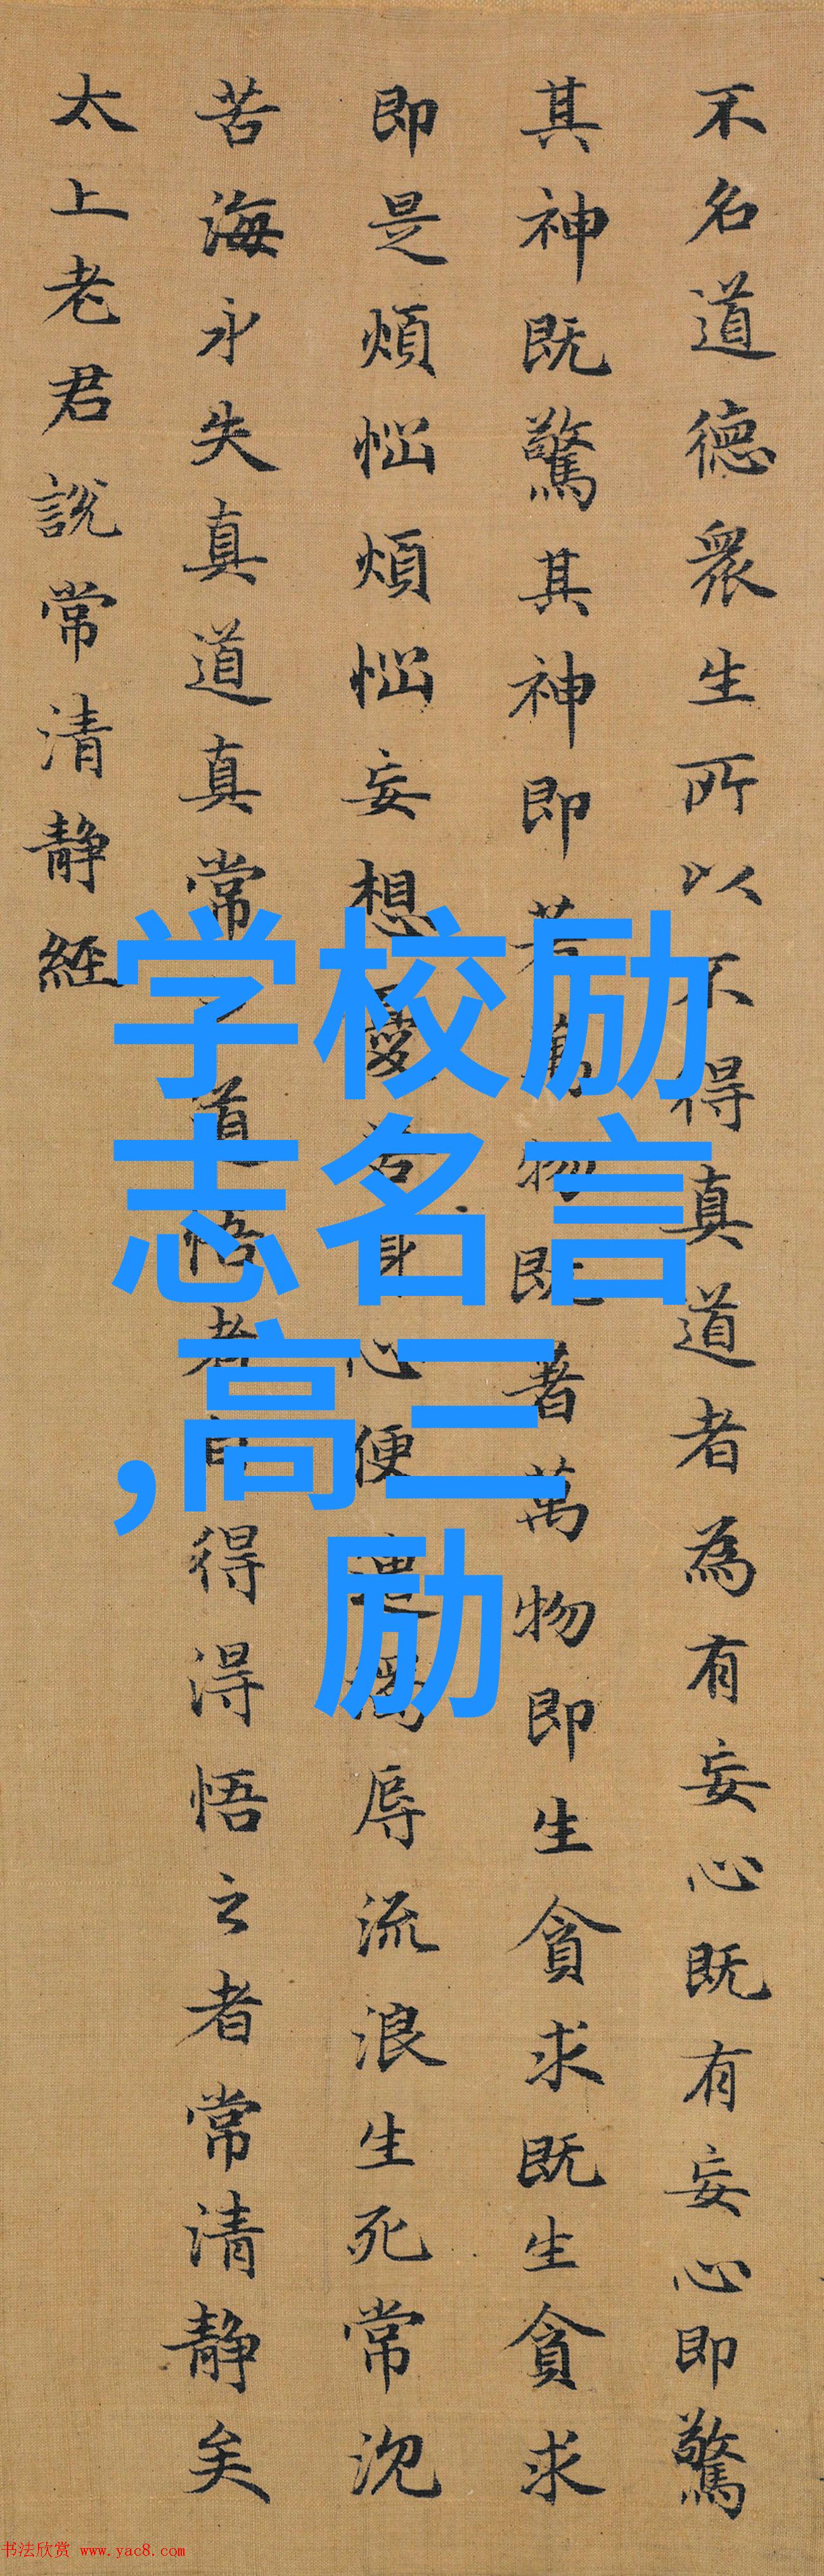 不名道德衆生所以不得真道者為有妄心既有妄心即驚
其神既驚其神即著萬物既著萬物即生貪求既生貪求
即是煩惱煩惱妄想憂苦身心便遭濁辱流浪生死常沉
苦海永失真道真常之道悟者自得得悟之者常清靜矣
太上老君說常清靜經
学校励
志名言
,高三
励
书法欣赏 www.yac8.com